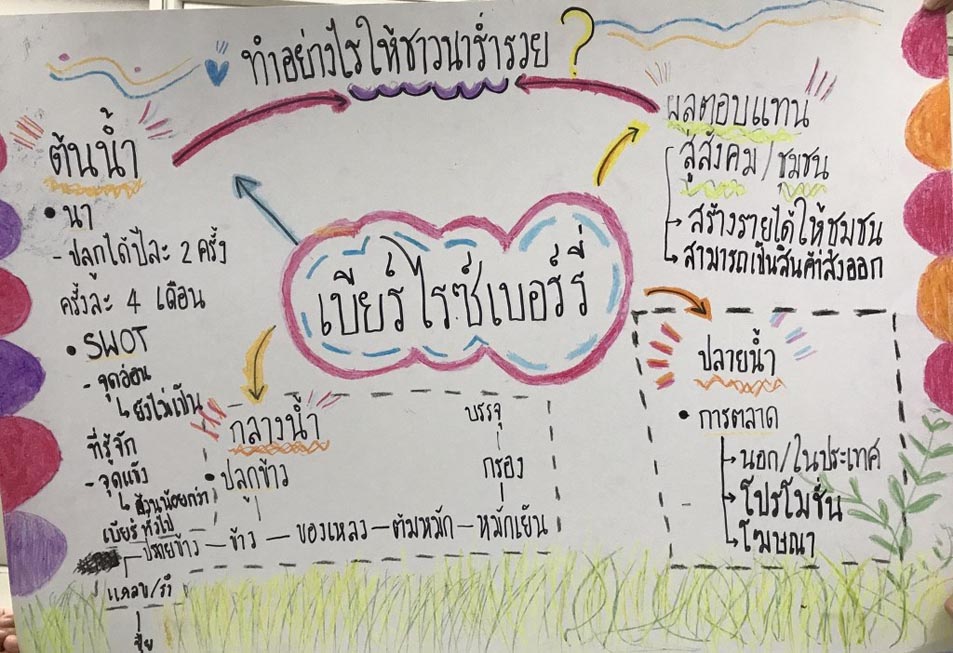 ทำอย่างไรให้ชาวนาร่ำรวย ?
ต้นน้ำ
• นา
- ปลูกได้ปีละ 2 ครั้ง
ครั้งละ 4 เดือน
• SWOT
- จุดอ่อน
↳ ยังไม่เป็น
ที่รู้จัก
- จุดแข็ง
↳ ส่วนน้อยกว่า
เบียร์ทั่วไป
เบียร์ไรซ์เบอร์รี่
ผลตอบแทน
สู่สังคม/ชุมชน
→ สร้างรายได้ให้ชุมชน
→ สามารถเป็นสินค้าส่งออก
กลางน้ำ
• ปลูกข้าว
ปลายข้าว - ข้าว - ของเหลว - ต้มหมัก - หมักเย็น
กรอง
บรรจุ
แกลบ/รำ
ปุ๋ย
ปลายน้ำ
• การตลาด
→ นอก/ในประเทศ
→ โปรโมชั่น
→ โฆษณา